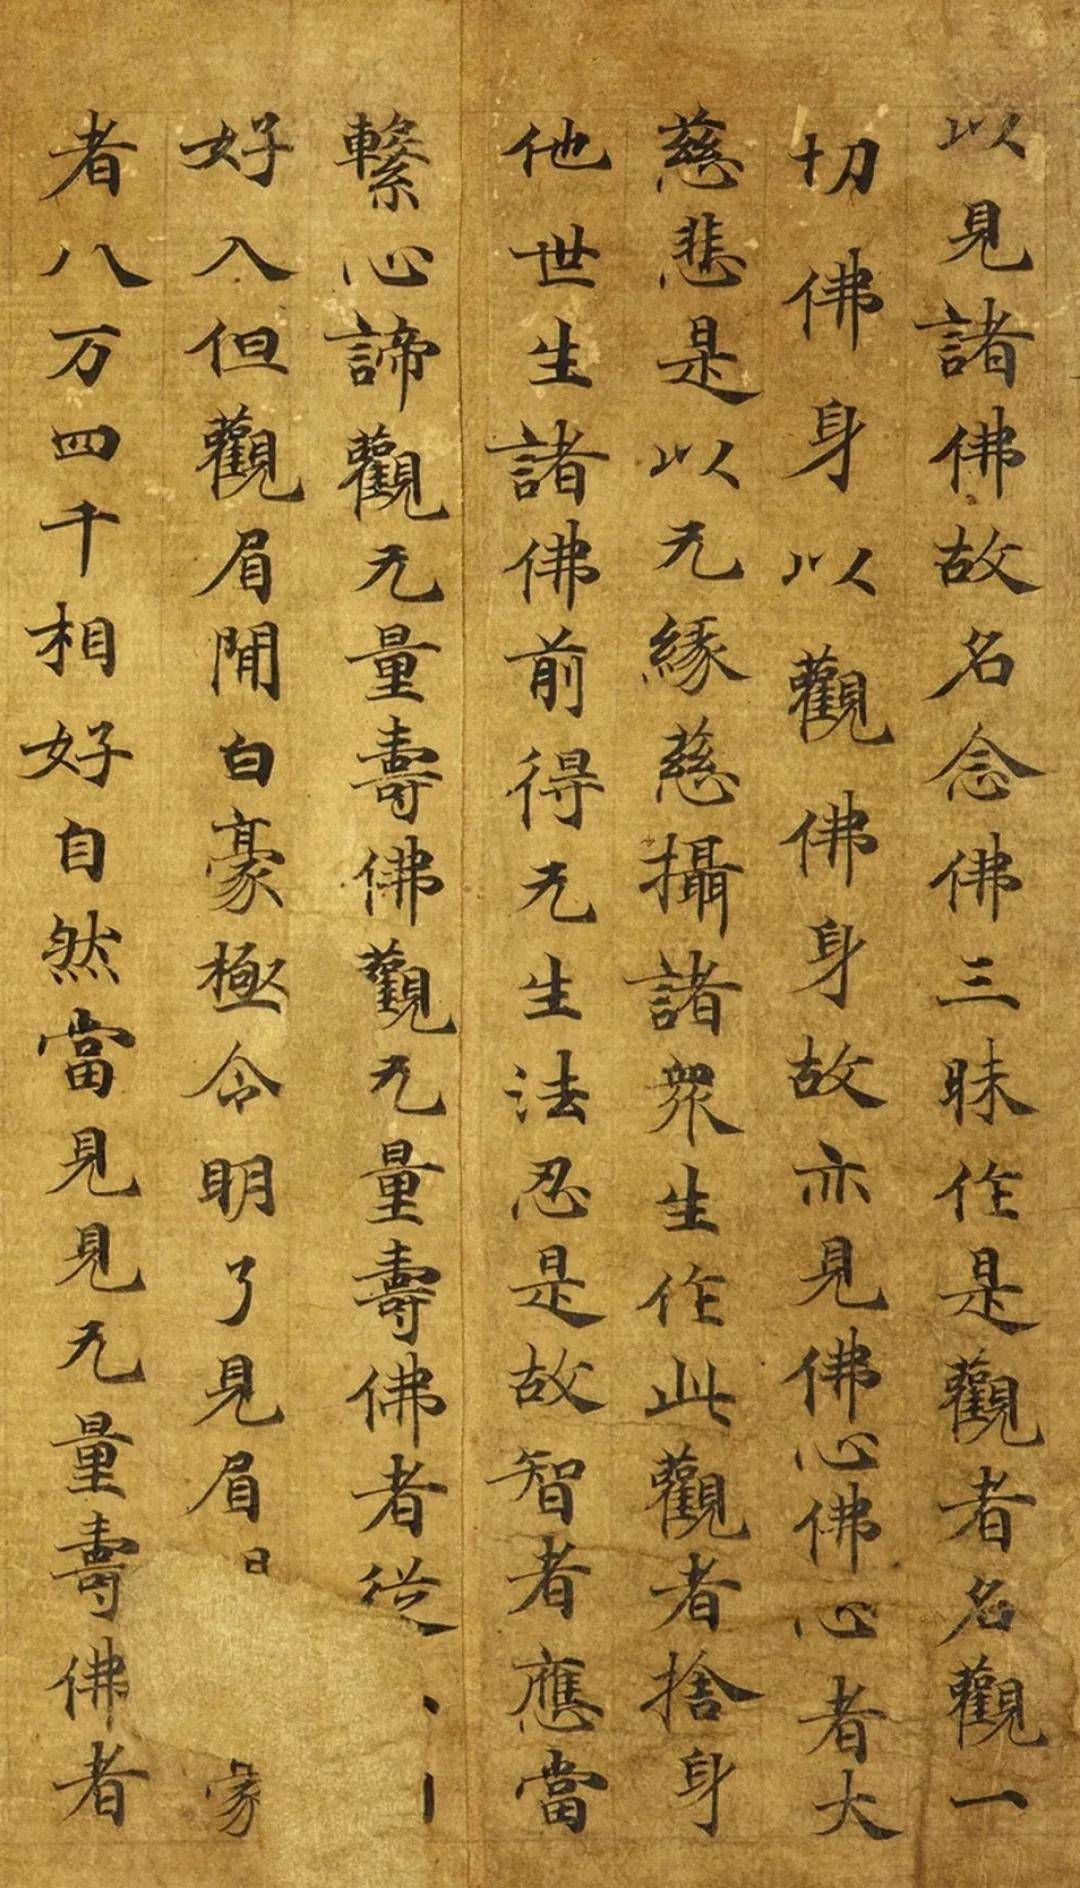 以見諸佛故名念佛三昧作是觀者名觀一
切佛身以觀佛身故亦見佛心佛心者大
慈悲是以无緣慈攝諸衆生作此觀者捨身
他世生諸佛前得无生法忍是故智者應當
繫心諦觀无量壽佛觀无量壽佛者從
好入但觀眉間白豪極令明了見眉
者八万四千相好自然當見見无量壽佛者